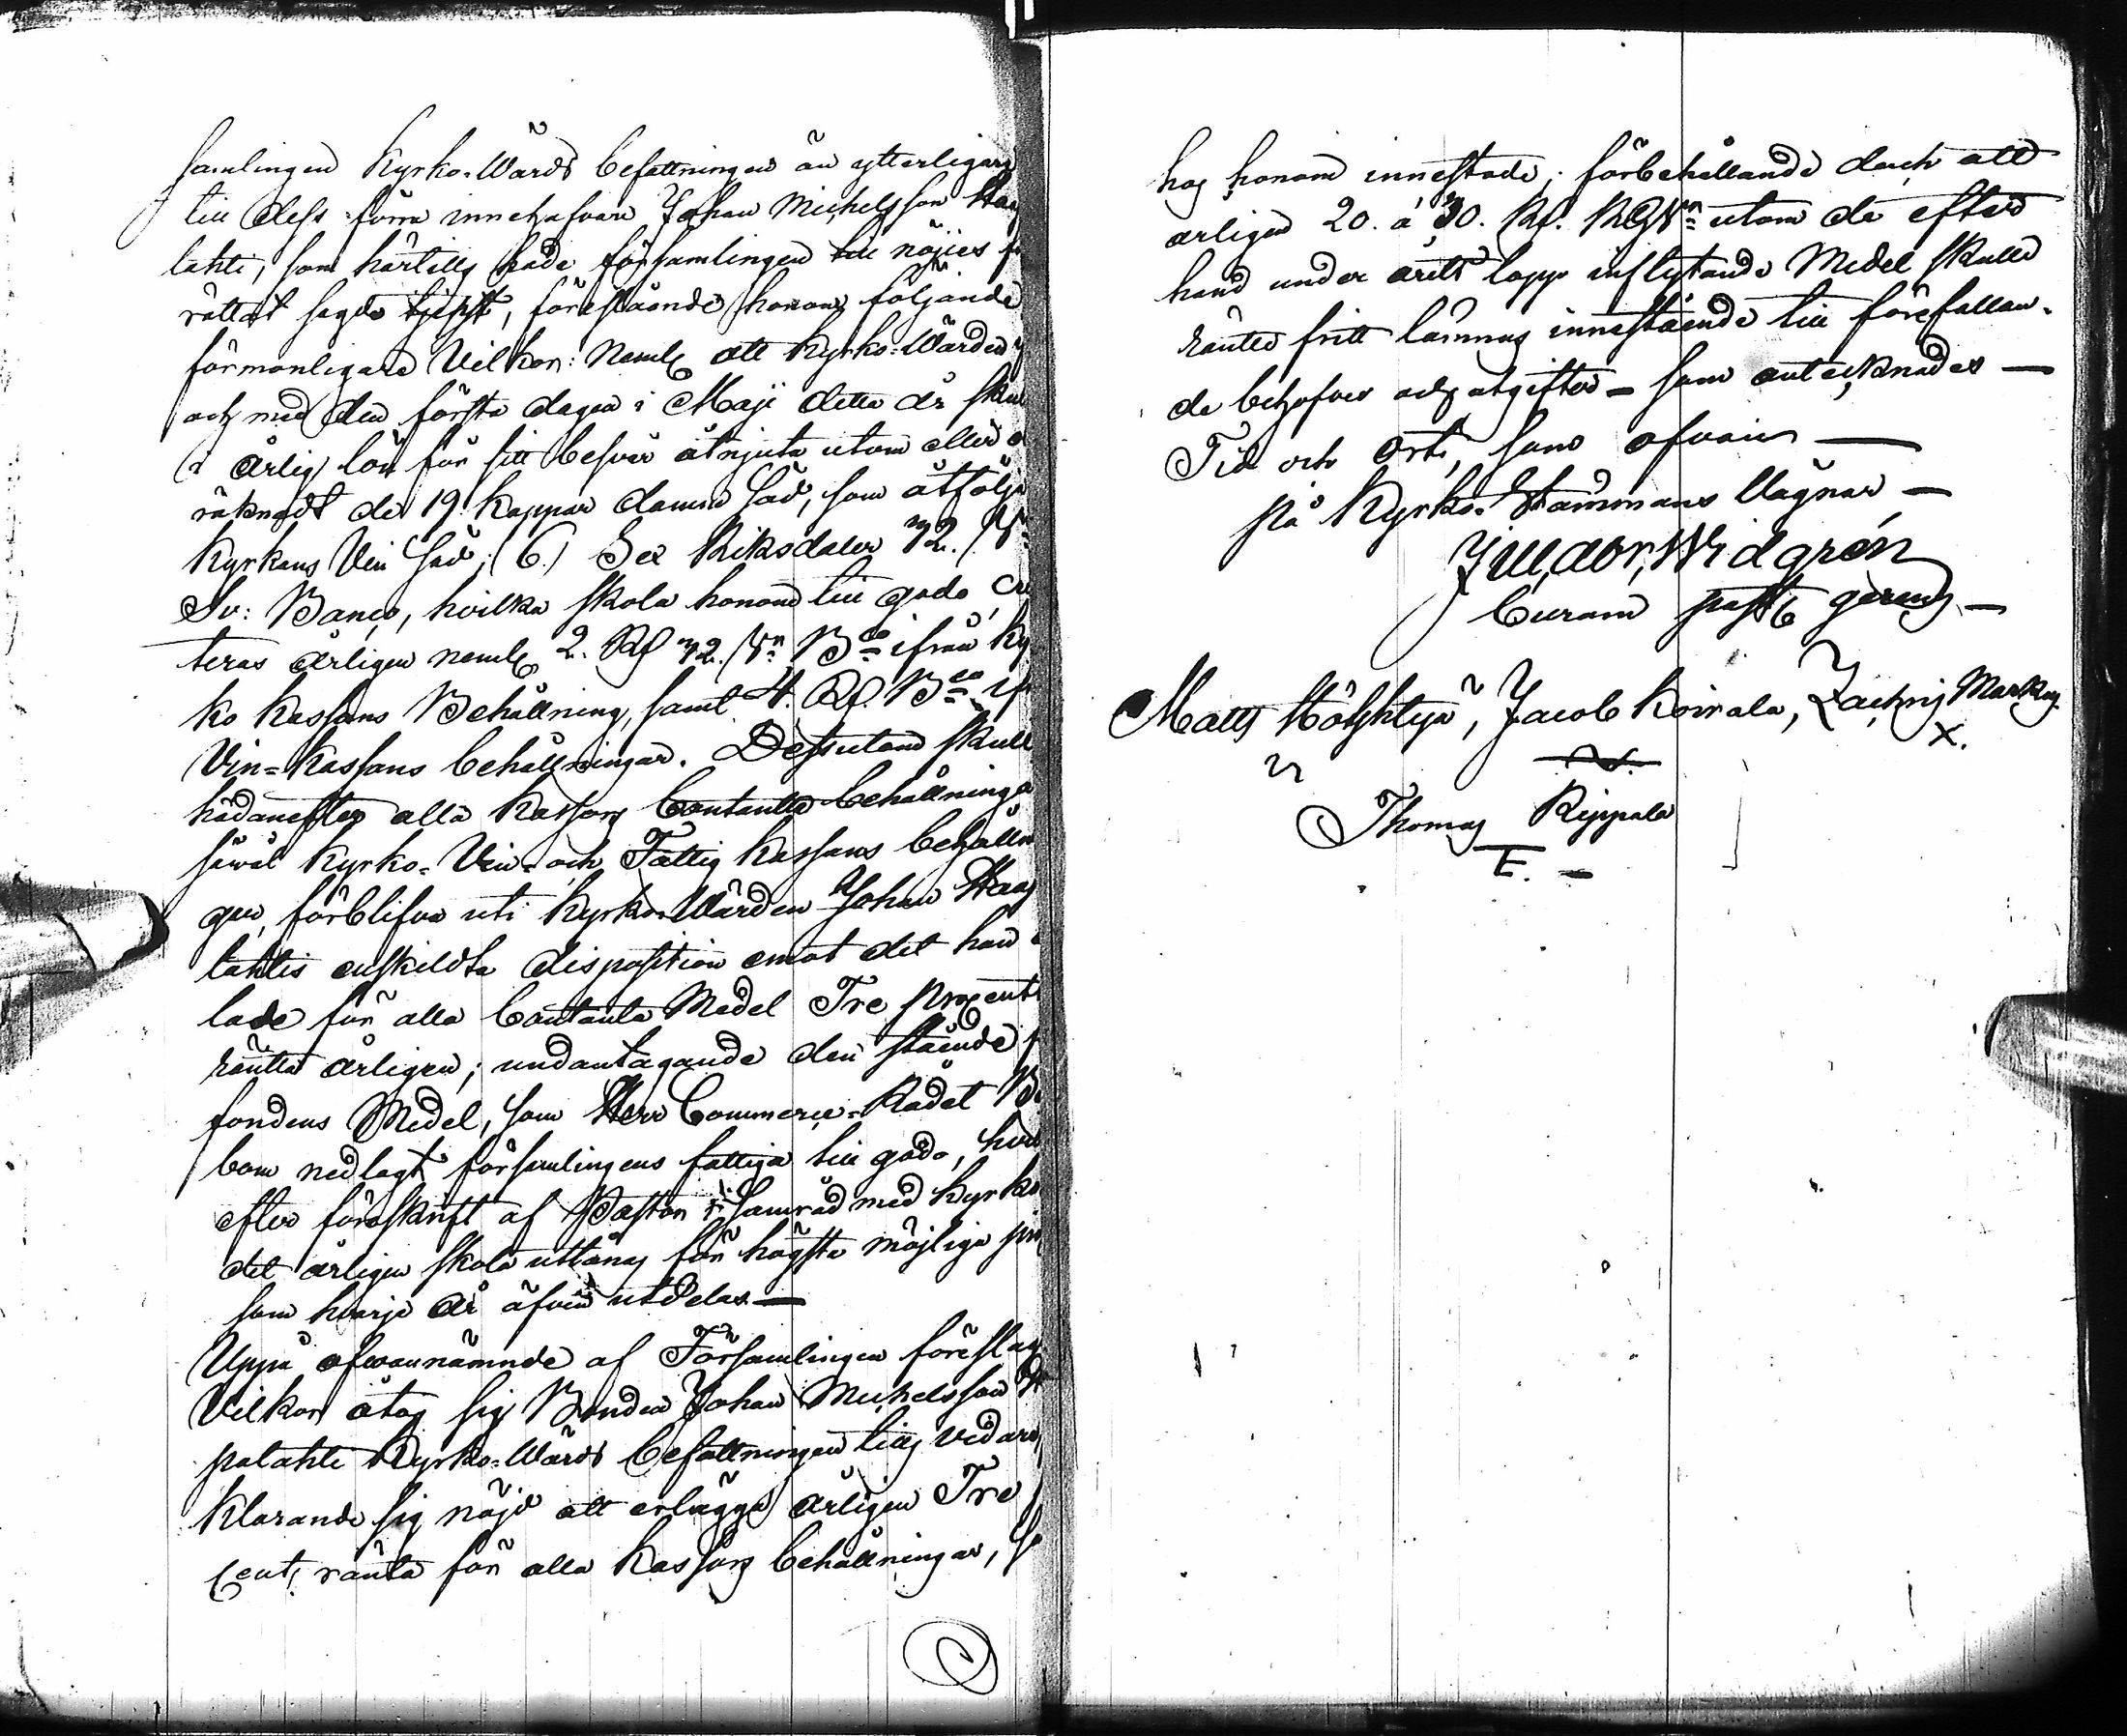 samlingen Kyrko-Wärds befattningen än ytterligare
till dess förra innehafvare Johan Michelsson Haa
lahti, som härtills hade församlingen till nöjies
rättat sagde tjenst, föreslående honom följande
förmonligare Vilkor: Neml. att Kyrko-Wärden
och med den första dagen i Maji detta år skul
i årlig lön för sitt besvär åtnjuta utom eller
räknadt de 19 kappar damm Säd, som åtfölja
Kyrkans Vin Säd, (6.) Sex Riksdaler 32. /
Sv: Banco, hvilka skola honom till godo
teras årligen neml. 2. Rd 32. / Bco ifrån Ky
ko Kassans Behållning, samt 4. Rd. Bco if
Vin-Kassans behållningar. Dessutom skulle
hädanefter alla Kassors Contanta behållninga
såwäl Kyrko- Vin- och Fattig Kassans behålln
gar, förblifva uti Kyrko-Wärden Johan Haa
lahtis enskildta disposition emot det han
lade för alla Contanta Medel Tre procent
ränta årligen; undantagande den stående
fondens Medel, som Herr Commercie-Rådet B
bom nedlagt församlingens fattiga till godo, hvil
efter föreskrift af Pastor i Samråd med Kyrko
det årligen skola utlånas för högsta möjliga
som hvarje år äfven utdelas —
Uppå ofvannämnde af Församlingen föreslag
Vilkor åtog sig Bonden Johan Michelsson
palahti Kyrko-Wärds befattningen tills vidare
klarande sig nöjd att erlägga årligen Tre
Cent, ränta för alla Kassors behållningar,
hos honom innestode; förbehållande doch att
årligen 20. à 30. Rd. RGS utom de efter
hand under årets lopp inflytande Medel skulle
räntefritt lämnas innestående till förefallan-
de behofver och utgifter — som antecknades —
Tid och Ort, som ofvan —
på Kyrko-Stämmans Vägnar —
Widgrén
Curam past. gerens —
Matts Jacob Koivala, Zachris Mark
X.
Thomas Rippala
T. —